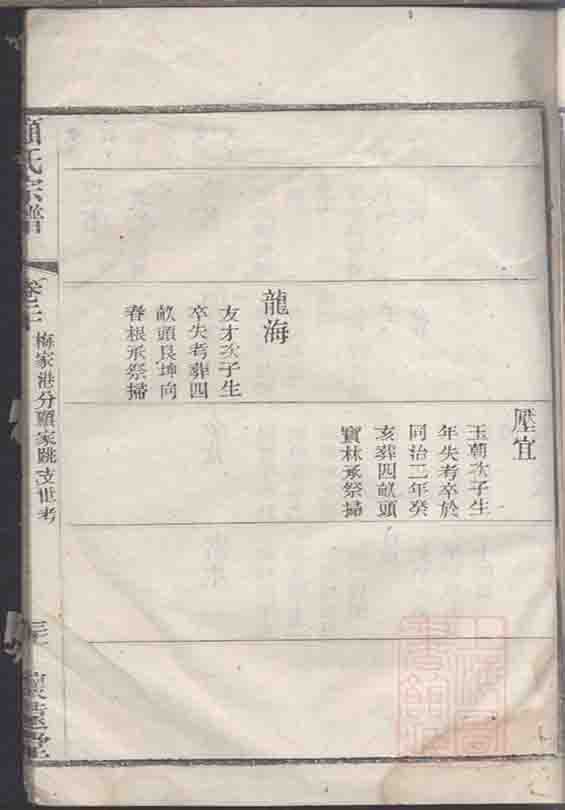 壓宜
玉朝次子生
年失考卒於
同治二年癸
亥葬四畝頭
寶林承祭掃
龍海
友才次子生
卒失考葬四
畝頭艮坤向
春根承祭掃
顧氏宗譜
梅家港分顧家跳支世考
懷遠堂
上海圖書館藏